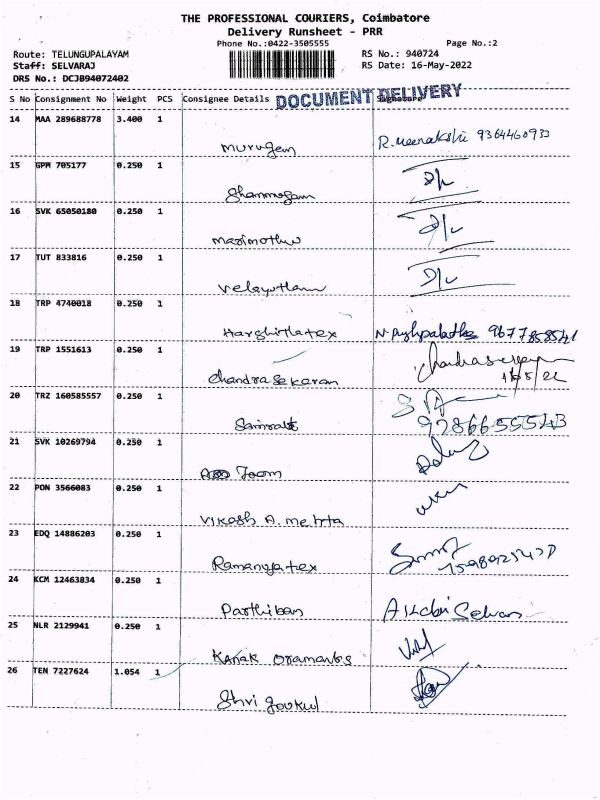 THE PROFESSIONAL COURIERS, Coimbatore
Delivery Runsheet - PRR
Phone No.:0422-3505555 Page No.:2
Route: TELUNGUPALAYAM RS No.: 940724
Staff: SELVARAJ RS Date: 16-May-2022
DRS No.: DCJB94072402
S No Consignment No Weight PCS Consignee Details DOCUMENT DELIVERY Signature
14 MAA 289688778 3.400 1 murugem R. Meenakshi 9364460933
15 GPM 705177 0.250 1 Shanmugam D/L
16 SVK 65050180 0.250 1 marimothu D/L
17 TUT 833816 0.250 1 velayutham D/L
18 TRP 4740018 0.250 1 Harshinatex 9677858541
19 TRP 1551613 0.250 1 Chandra Sekaran
20 TRZ 160585557 0.250 1
21 SVK 10269794 0.250 1 Zoom
22 PON 3566083 0.250 1 Vikash A. mehta
23 EDQ 14886203 0.250 1 Ramanuja tex
24 KCM 12463834 0.250 1 Parthiban
25 NLR 2129941 0.250 1 Kanak
26 TEN 7227624 1.054 1 Shri Goukul